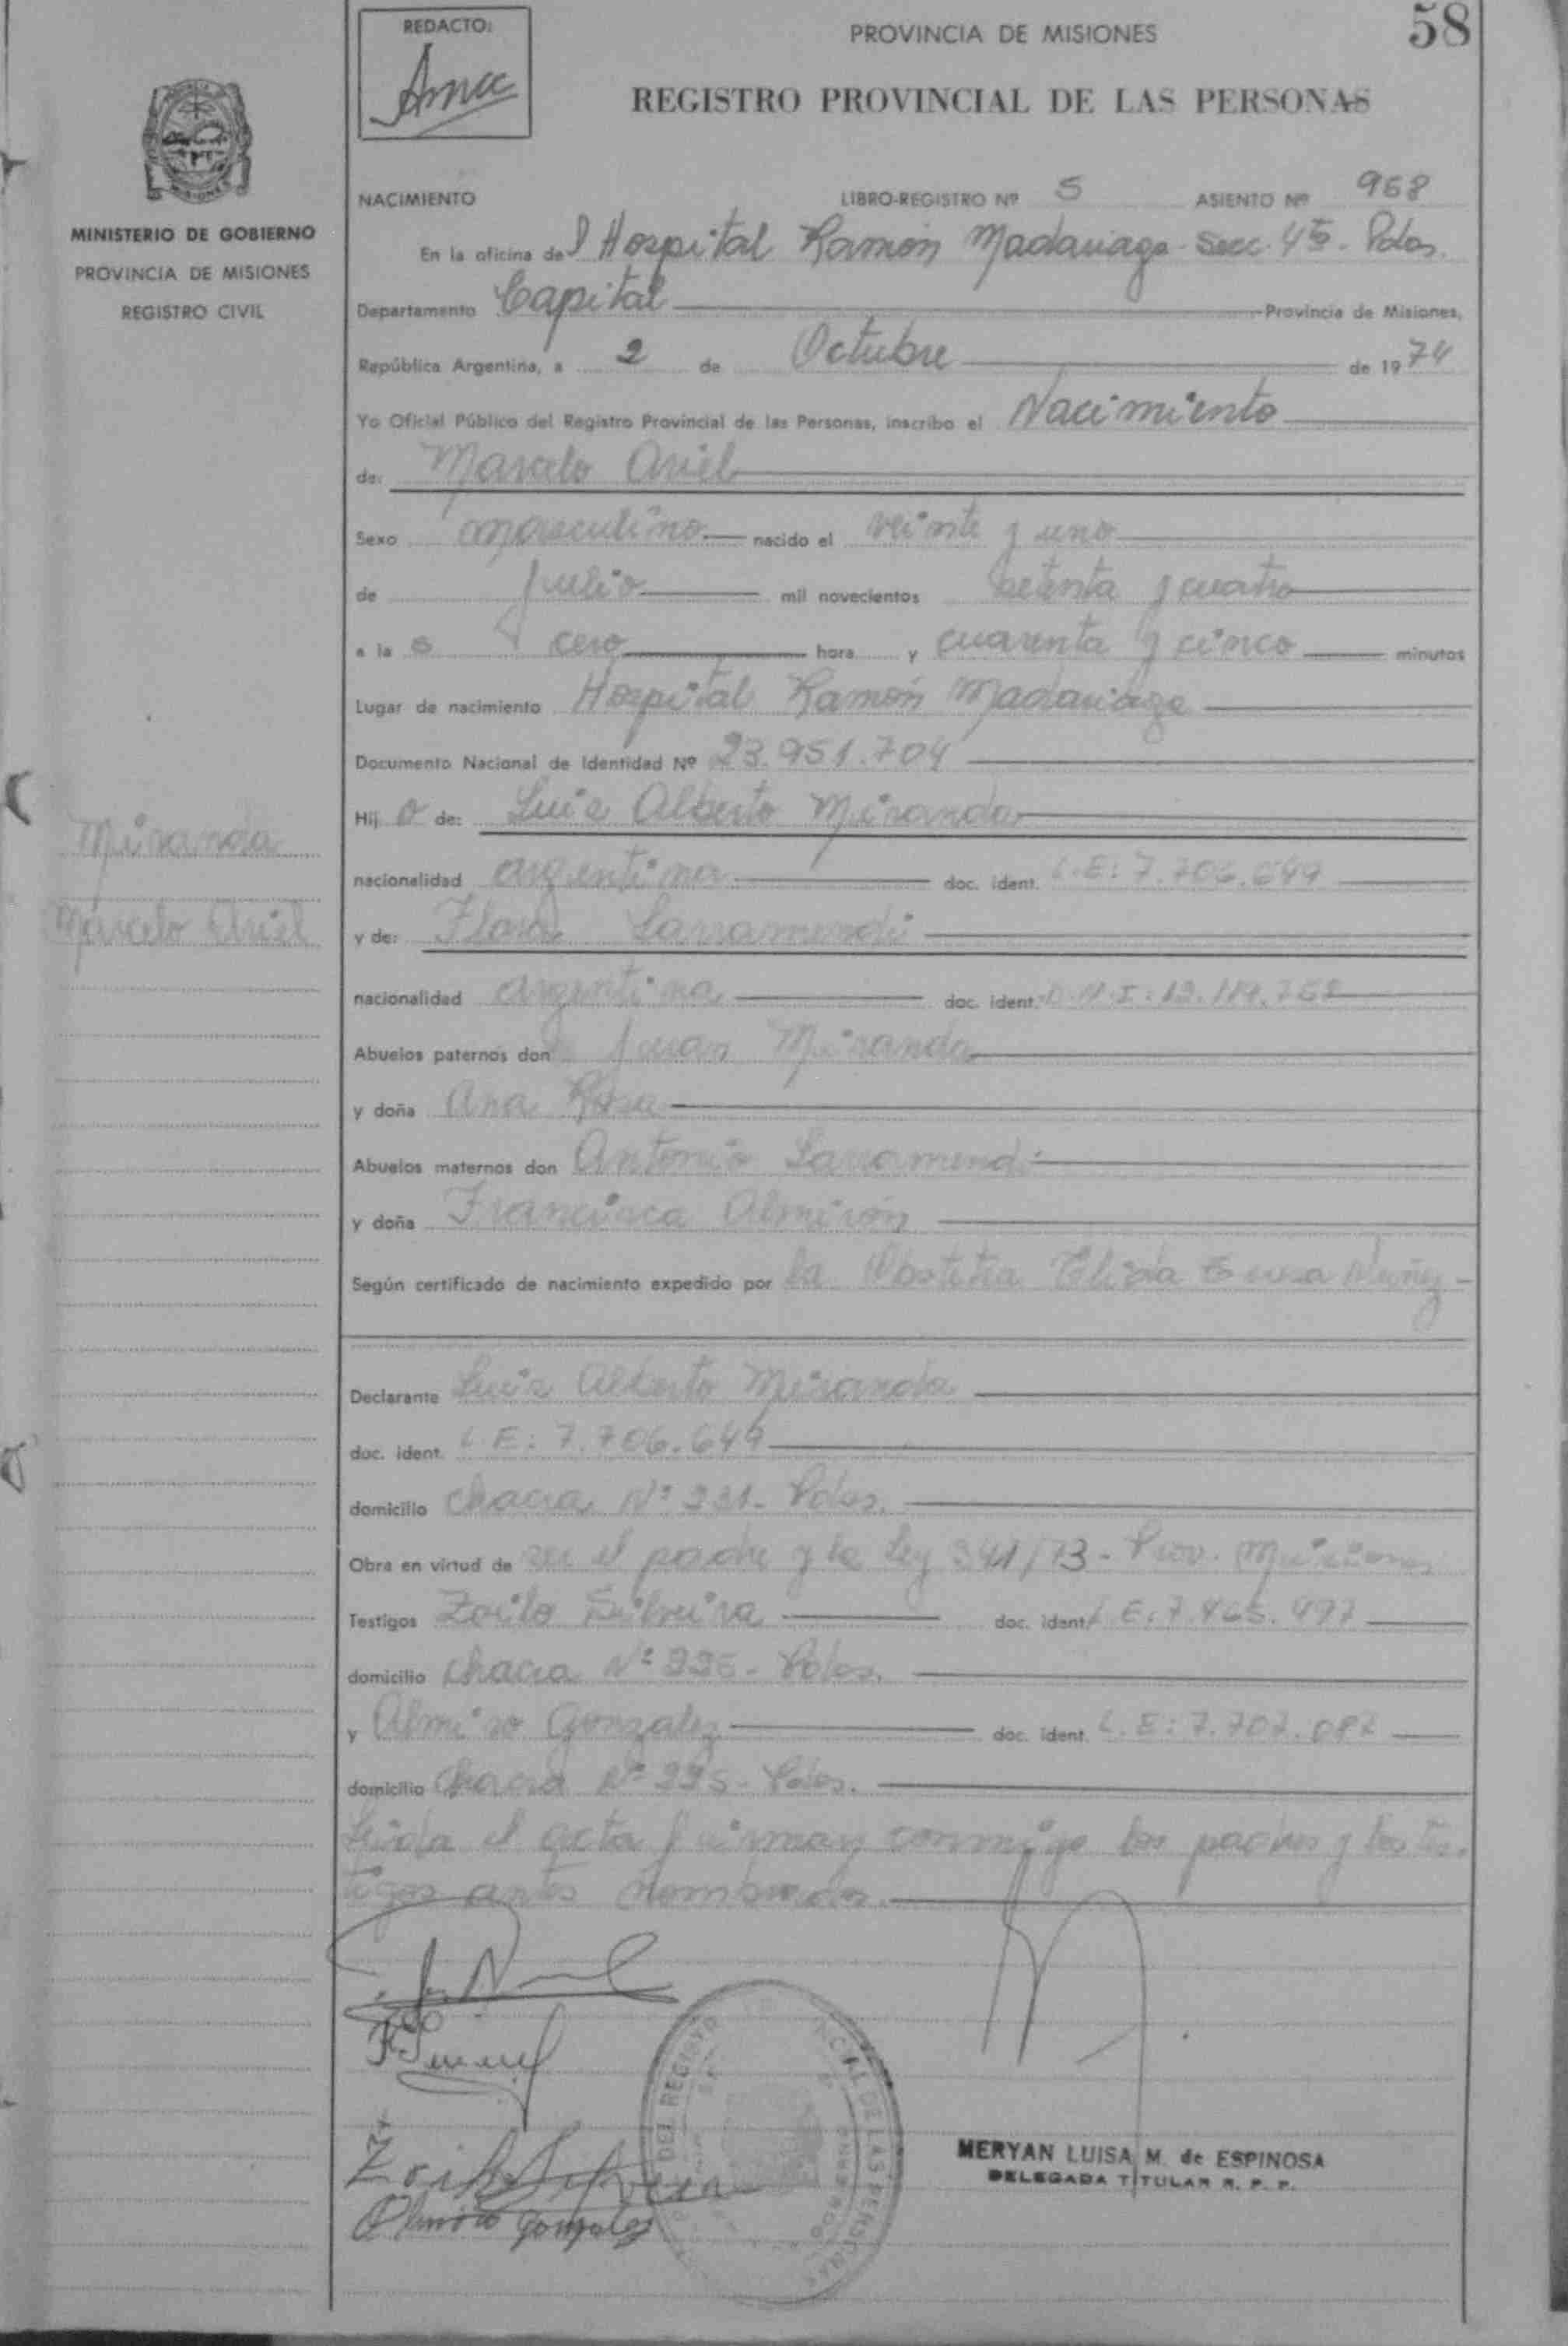 REDACTO:
PROVINCIA DE MISIONES
58
REGISTRO PROVINCIAL DE LAS PERSONAS
MINISTERIO DE GOBIERNO
PROVINCIA DE MISIONES
REGISTRO CIVIL
NACIMIENTO LIBRO-REGISTRO Nº 5 ASIENTO Nº 968
En la oficina del Hospital Ramón Madariaga - Secc. 4ta. Pdas.
Departamento Capital Provincia de Misiones,
República Argentina, a 2 de Octubre de 1974
Yo Oficial Público del Registro Provincial de las Personas, inscribo el Nacimiento
de: Marcelo Ariel
Sexo masculino nacido el veinte y uno
de julio mil novecientos setenta y cuatro
a la s cero hora y cuarenta y cinco minutos
Lugar de nacimiento Hospital Ramón Madariaga
Documento Nacional de Identidad Nº 23.951.704
Hijo de: Luis Alberto Miranda
nacionalidad argentina doc. ident. L.E: 7.706.649
Miranda
Marcelo Ariel
y de: Flora Larramendi
nacionalidad argentina doc. ident. D.N.I:
Abuelos paternos don Juan Miranda
y doña Ana Rosa
Abuelos maternos don Antonio Larramendi
y doña Francisca Almirón
Según certificado de nacimiento expedido por la Obstetra Elida Nuñez -
Declarante Luis Alberto Miranda
doc. ident. L.E: 7.706.649
domicilio chacra Nº Pdas.
Obra en virtud de ser el padre y la Ley 341/73 - Prov. Misiones
Testigos Zoilo Silveira doc. ident. L.E: 7.465.497
domicilio chacra Nº Pdas.
y Almiro Gonzalez doc. ident. L.E: 7.707.087
domicilio chacra Nº Pdas.
Leida el acta firman conmigo los padres y los tes-
tigos antes nombrados.
Zoilo Silveira
Almiro Gonzalez
MERYAN LUISA M. de ESPINOSA
DELEGADA TITULAR R. P. P.